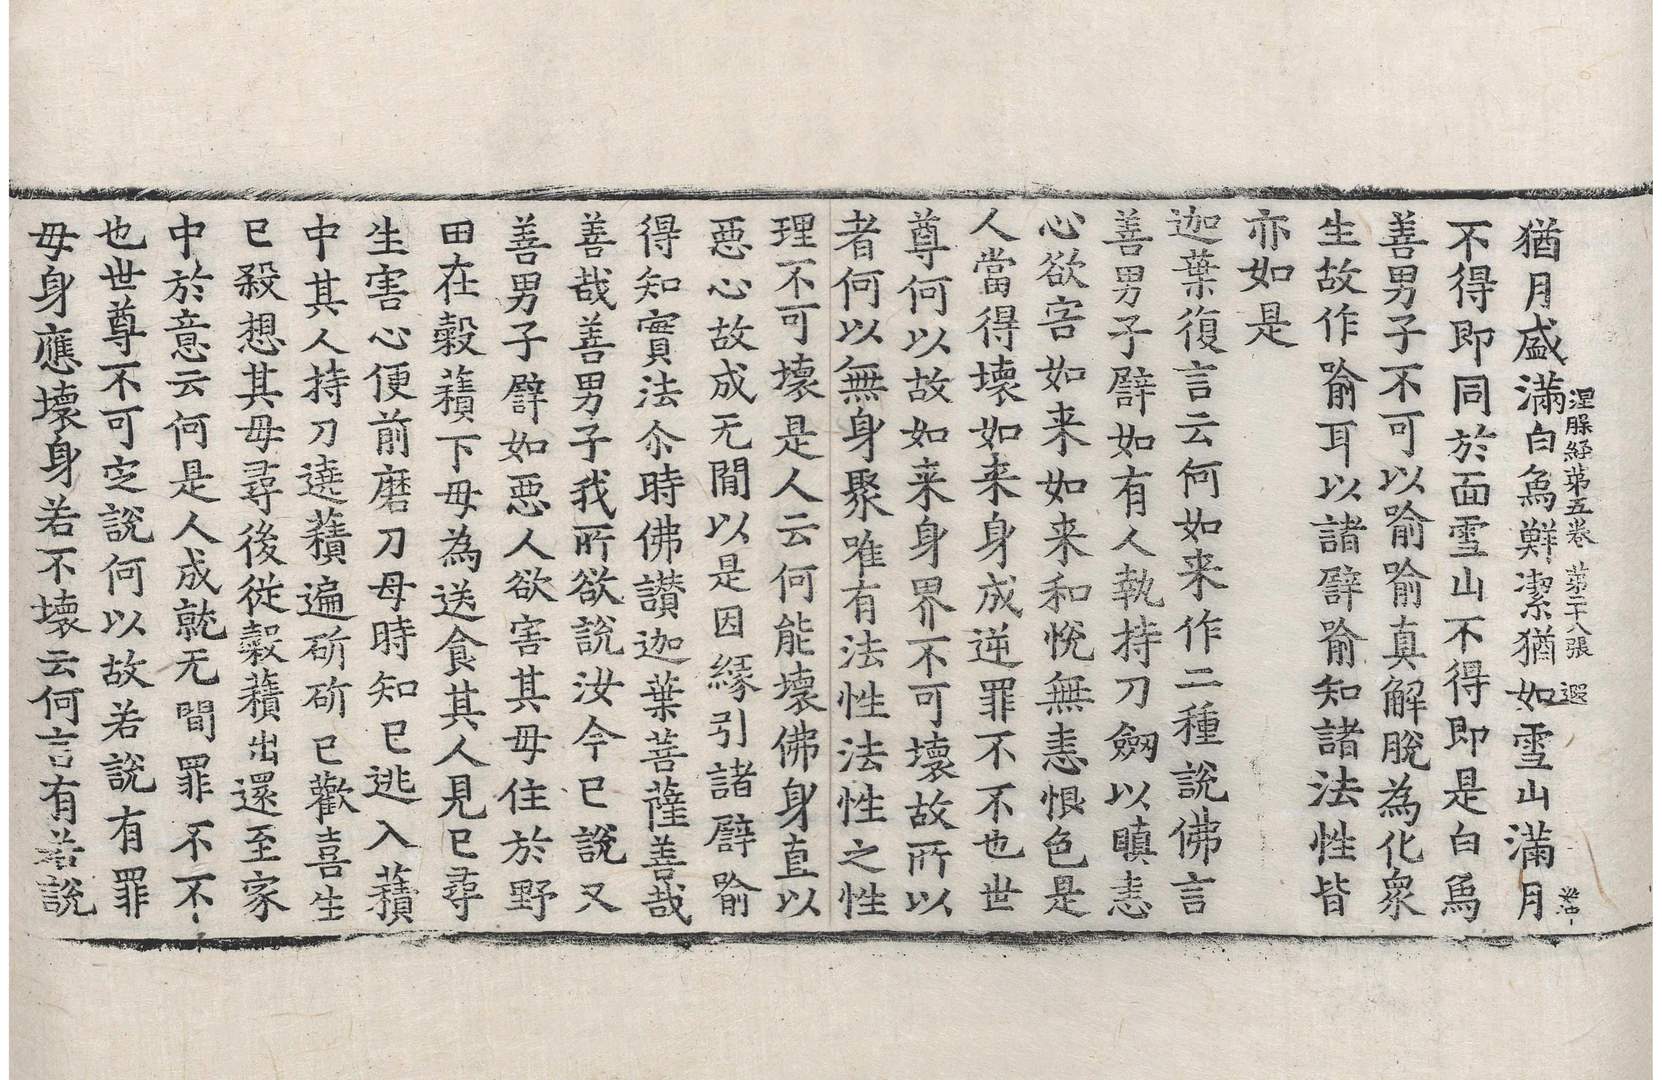 涅槃経第五卷 第二十八張 遐
猶月盛滿白鳥鮮潔猶如雪山滿月
不得即同於面雪山不得即是白鳥
善男子不可以喻喻真解脫為化衆
生故作喻耳以諸譬喻知諸法性皆
亦如是
迦葉復言云何如来作二種說佛言
善男子譬如有人執持刀劒以瞋恚
心欲害如来如来和悅無恚恨色是
人當得壞如来身成逆罪不不也世
尊何以故如来身界不可壞故所以
者何以無身聚唯有法性法性之性
理不可壞是人云何能壞佛身直以
惡心故成无間以是因緣引諸譬喻
得知實法尒時佛讃迦葉菩薩善哉
善哉善男子我所欲說汝今已說又
善男子譬如惡人欲害其母住於野
田在穀𧂐下母為送食其人見已尋
生害心便前磨刀母時知已逃入𧂐
中其人持刀遶𧂐遍斫斫已歡喜生
已殺想其母尋後從穀𧂐出還至家
中於意云何是人成就无間罪不不
也世尊不可定說何以故若說有罪
母身應壞身若不壞云何言有若說